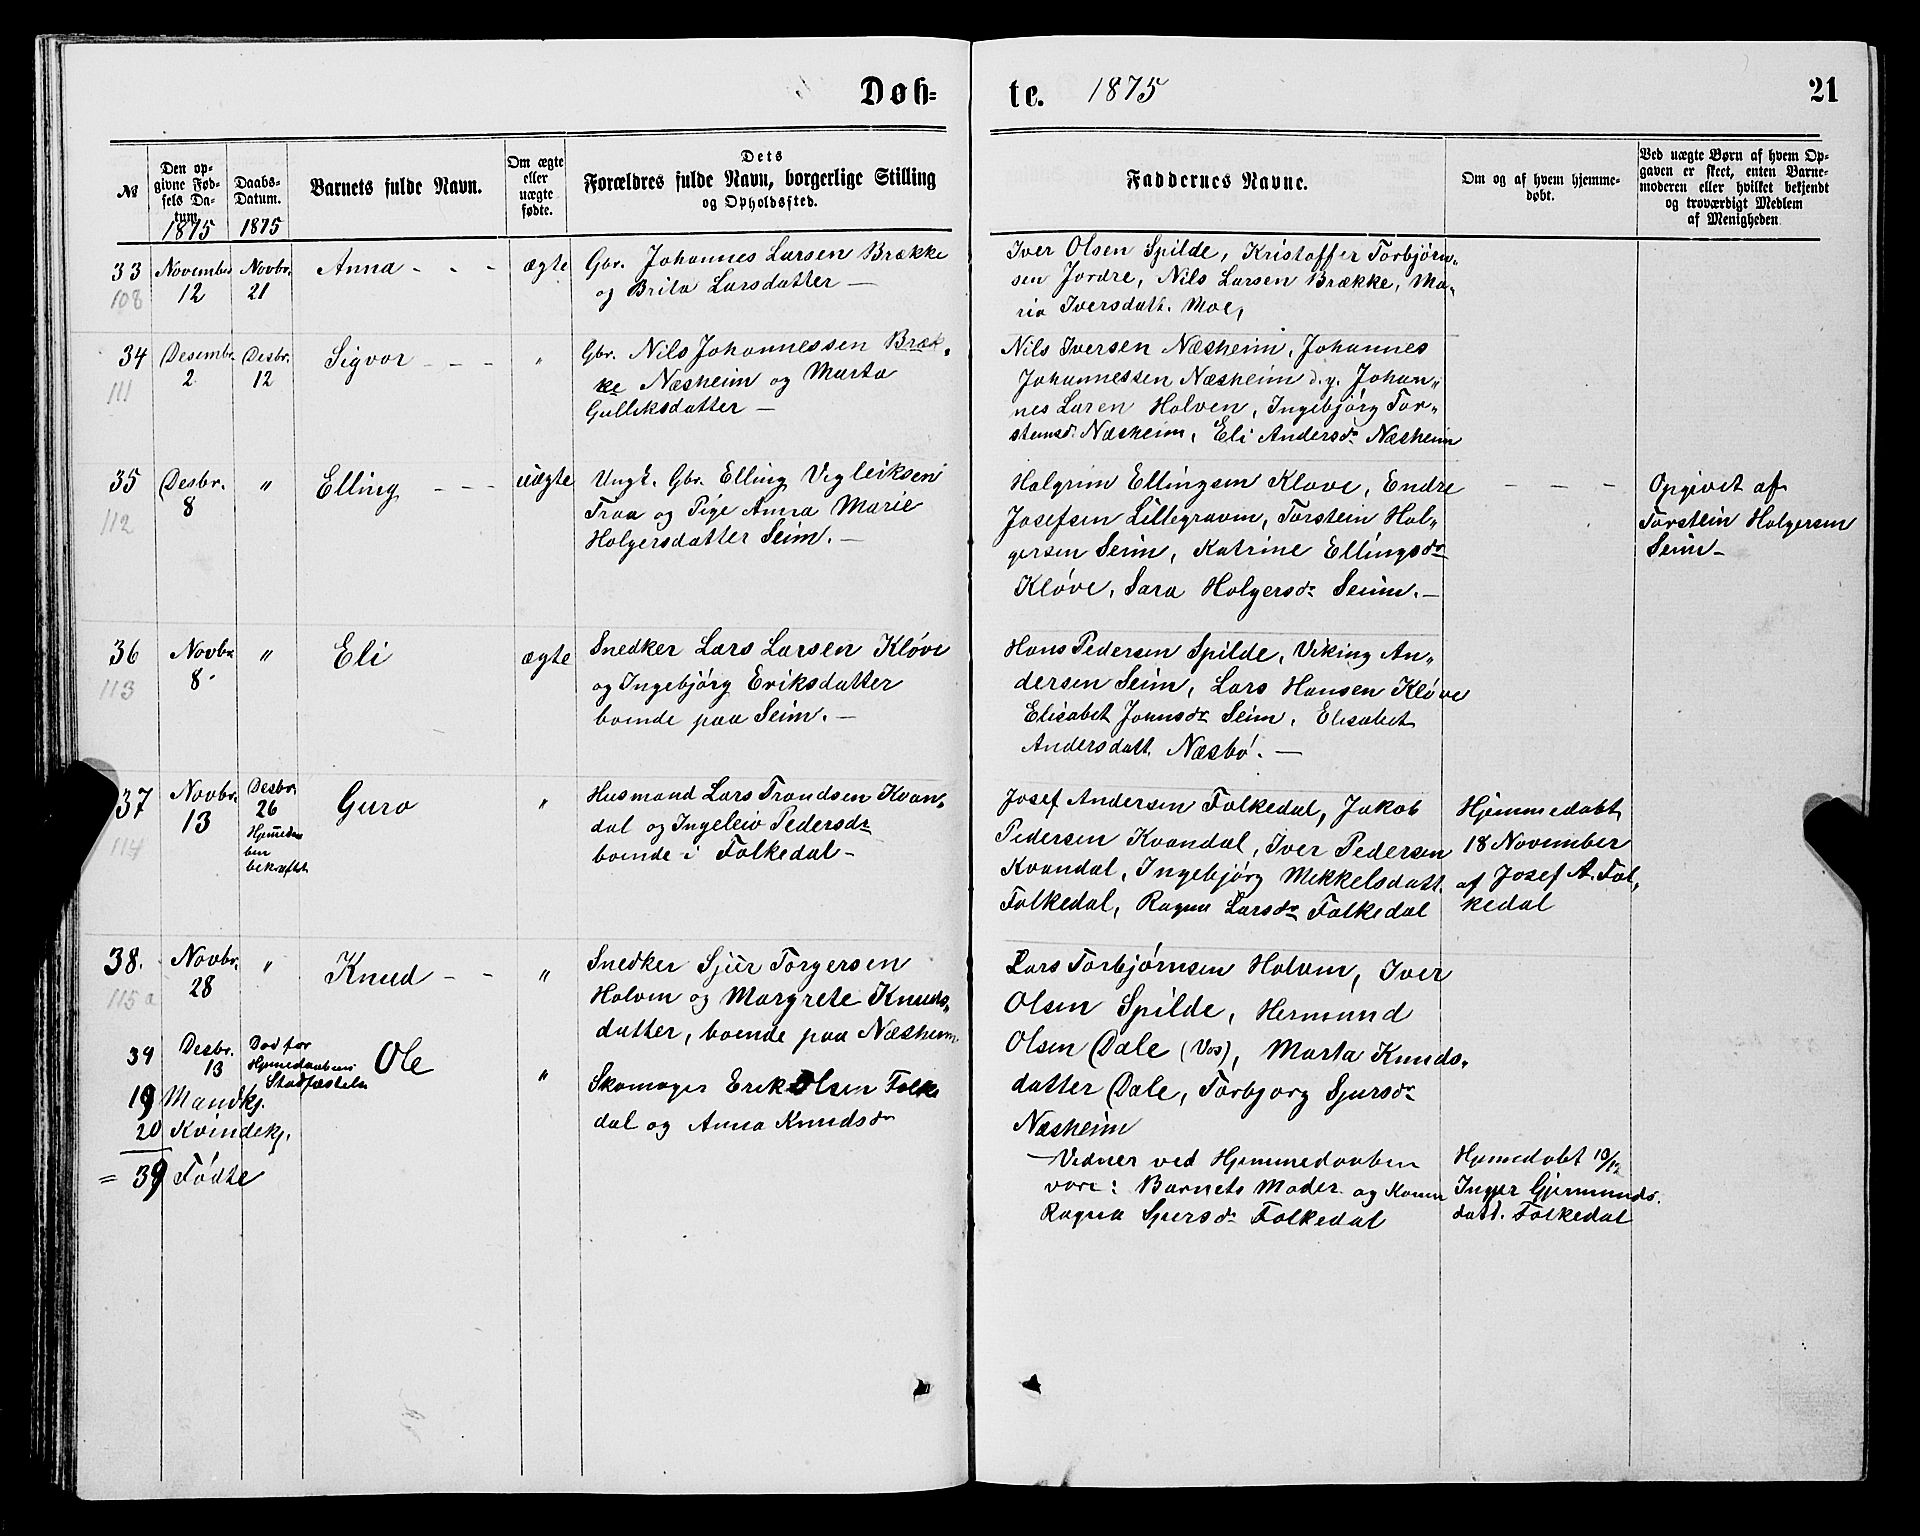 Døb=
te. 1875
21
№
Den op=
givne Fød=
sels Da=
tum.
1875
Daabs=
Datum.
1875
Barnets fulde Navn.
Om ægte
eller
uægte
fødte.
Dets
Forældres fulde Navn, borgerlige Stilling
og Opholdssted.
Faddernes Navne.
Om og af hvem hjemme=
døbt.
Ved uægte Børn af hvem Op=
gaven er skeet, enten Barne=
moderen eller hvilket bekjendt
og troværdigt Medlem
af Menigheden.
33
108
November
12
Novbr.
21
Anna - - -
ægte
Gbr. Johannes Larsen Brække
og Brita Larsdatter —
Iver Olsen Spilde, Kristoffer Torbjørn„
sen Jordre, Nils Larsen Brække, Ma„
ria Iversdatt. Moe,
34
111
Desembr.
2
Desbr.
12
Sigvor - - -
"
Gbr. Nils Johannessen Bræk„
ke Næsheim og Marta
Gulleksdatter —
Nils Iversen Næsheim, Johannes
Johannessen Næsheim d.y. Johan„
nes Laren Holven, Ingebjørg Tor„
steinsdr Næsheim, Eli Andersdr Næsheim
35
112
Desbr.
8
"
Elling - - -
uægte
Ungk. Gbr. Elling Vigleiksen
Traa og Pige Anna Marie
Holgersdatter Seim. —
Halgrim Ellingsen Kløve, Endre
Josefsen Lillegraven, Torstein Hol„
gersen Seim, Katrine Ellingsdr
Kløve, Sara Holgersdr Seim. —
- - -
Opgivet af
Torstein Holgersen
Seim -
36
113
Novbr
8.
"
Eli
ægte
Snedker Lars Larsen Kløve
og Ingebjörg Eriksdatter
boende paa Seim. —
Hans Pedersen Spilde, Viking An„
dersen Seim, Lars Hansen Kløve
Elisabet Jonnsdr Seim, Elisabet
Andersdatt. Næsbø. —
37
114
Novbr.
13
Desbr.
26
Hjemmedaa
ben
bekræftet
Guro
"
Husmand Lars Trondsen Kvan„
dal og Ingeleiv Pedersdr
boende i Folkedal -
Josef Andersen Folkedal, Jakob
Pedersen Kvandal, Iver Pedersen
Kvandal, Ingebjørg Mekkelsdatt.
Folkedal, Ragna Larsdr Folkedal
Hjemmedøbt
18 November
af Josef A. Fol„
kedal
38.
115 a
Novbr.
28
"
Knud - -
"
Snedker Sjur Torgersen
Holven og Margrete Knuds„
datter, boende paa Næsheim
Lars Torbjørnsen Holven, Iver
Olsen Spilde, Hermund
Olsen Dale (Vos), Marta Knuds„
datter Dale, Torbjørg Sjursdr
Næsheim
39
Desbr.
13
Død før
Hjemedaabens
Stadfæstelse
Ole
"
Skomager Erik Olsen Folke
dal og Anna Knudsdr
— Vidner ved Hjemmedaaben
vare: Barnets Moder og Konen
Ragna Sjursdr Folkedal
Hjemedøbt
Inger Gjermunds.
datt. Folkedal
19 Mandkj.
20 Kvindekj.
= 39 Fødte